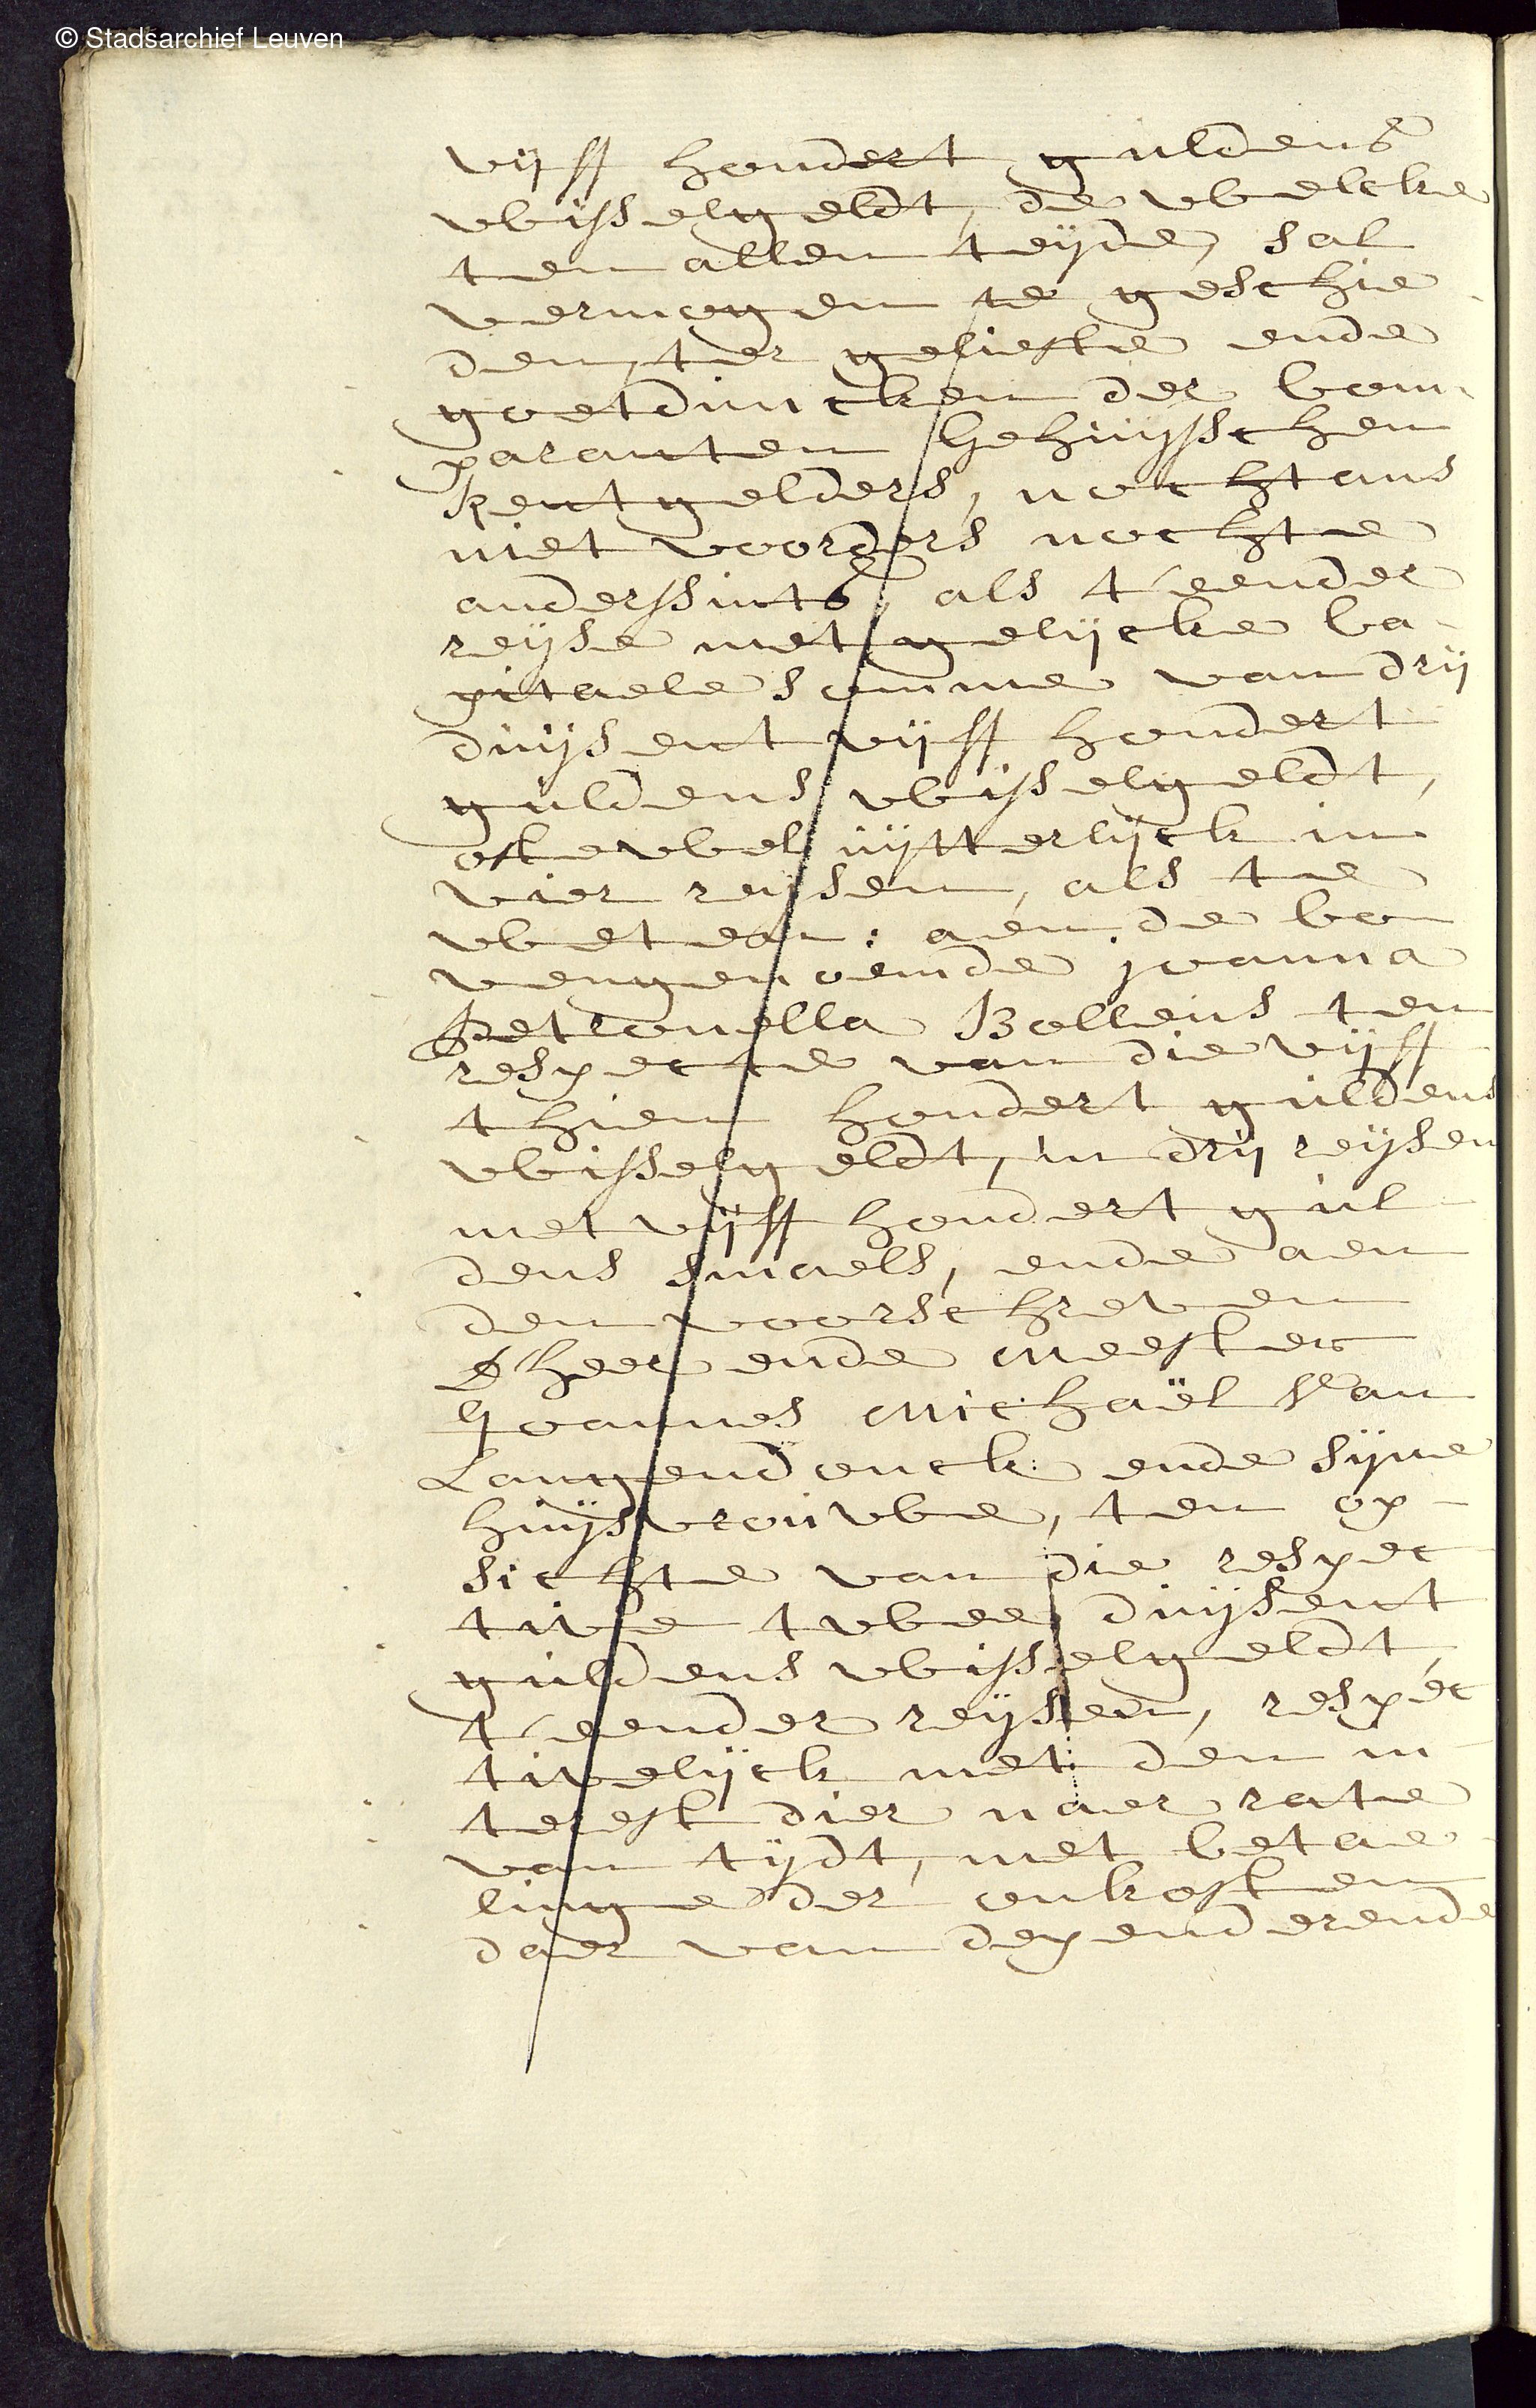 © Stadsarchief Leuven
vijff hondert guldens
wisselgeldt, de welcke
ten allen teijde, sal
vermogen te geschie
den, ter geliefte ende
goetduncken der Com
paranten Gehuijsschen
Rentgelders, nochtans
niet voorders nochte
anderssints, als t'eender
reijse met gelijcke Ca-
pitaele somme van drij
duijsent vijff hondert
guldens wisselgeldt,
oft ewel uijtterlijck in
vier reijsen, als te
weten: aen de bo
vengenoemde joanna
Petronella Bollens ten
respecte van die vijff
thien hondert guldens
wisselgeldt, in drij reijsen
met vijff hondert gul
dens smaels, ende aen
den voorschreven
D'heer ende Meester
Joannes Michaël Van
Langendonck ende sijne
huijsvrouwe, ten op-
sichte van die respec
tive twee duijsent
guldens wisselgeldt,
t'eender reijsen, respec
tivelijck met den in
terest dier naer rate
van tijdt, met betae
linge der onkosten
daer van dependerende